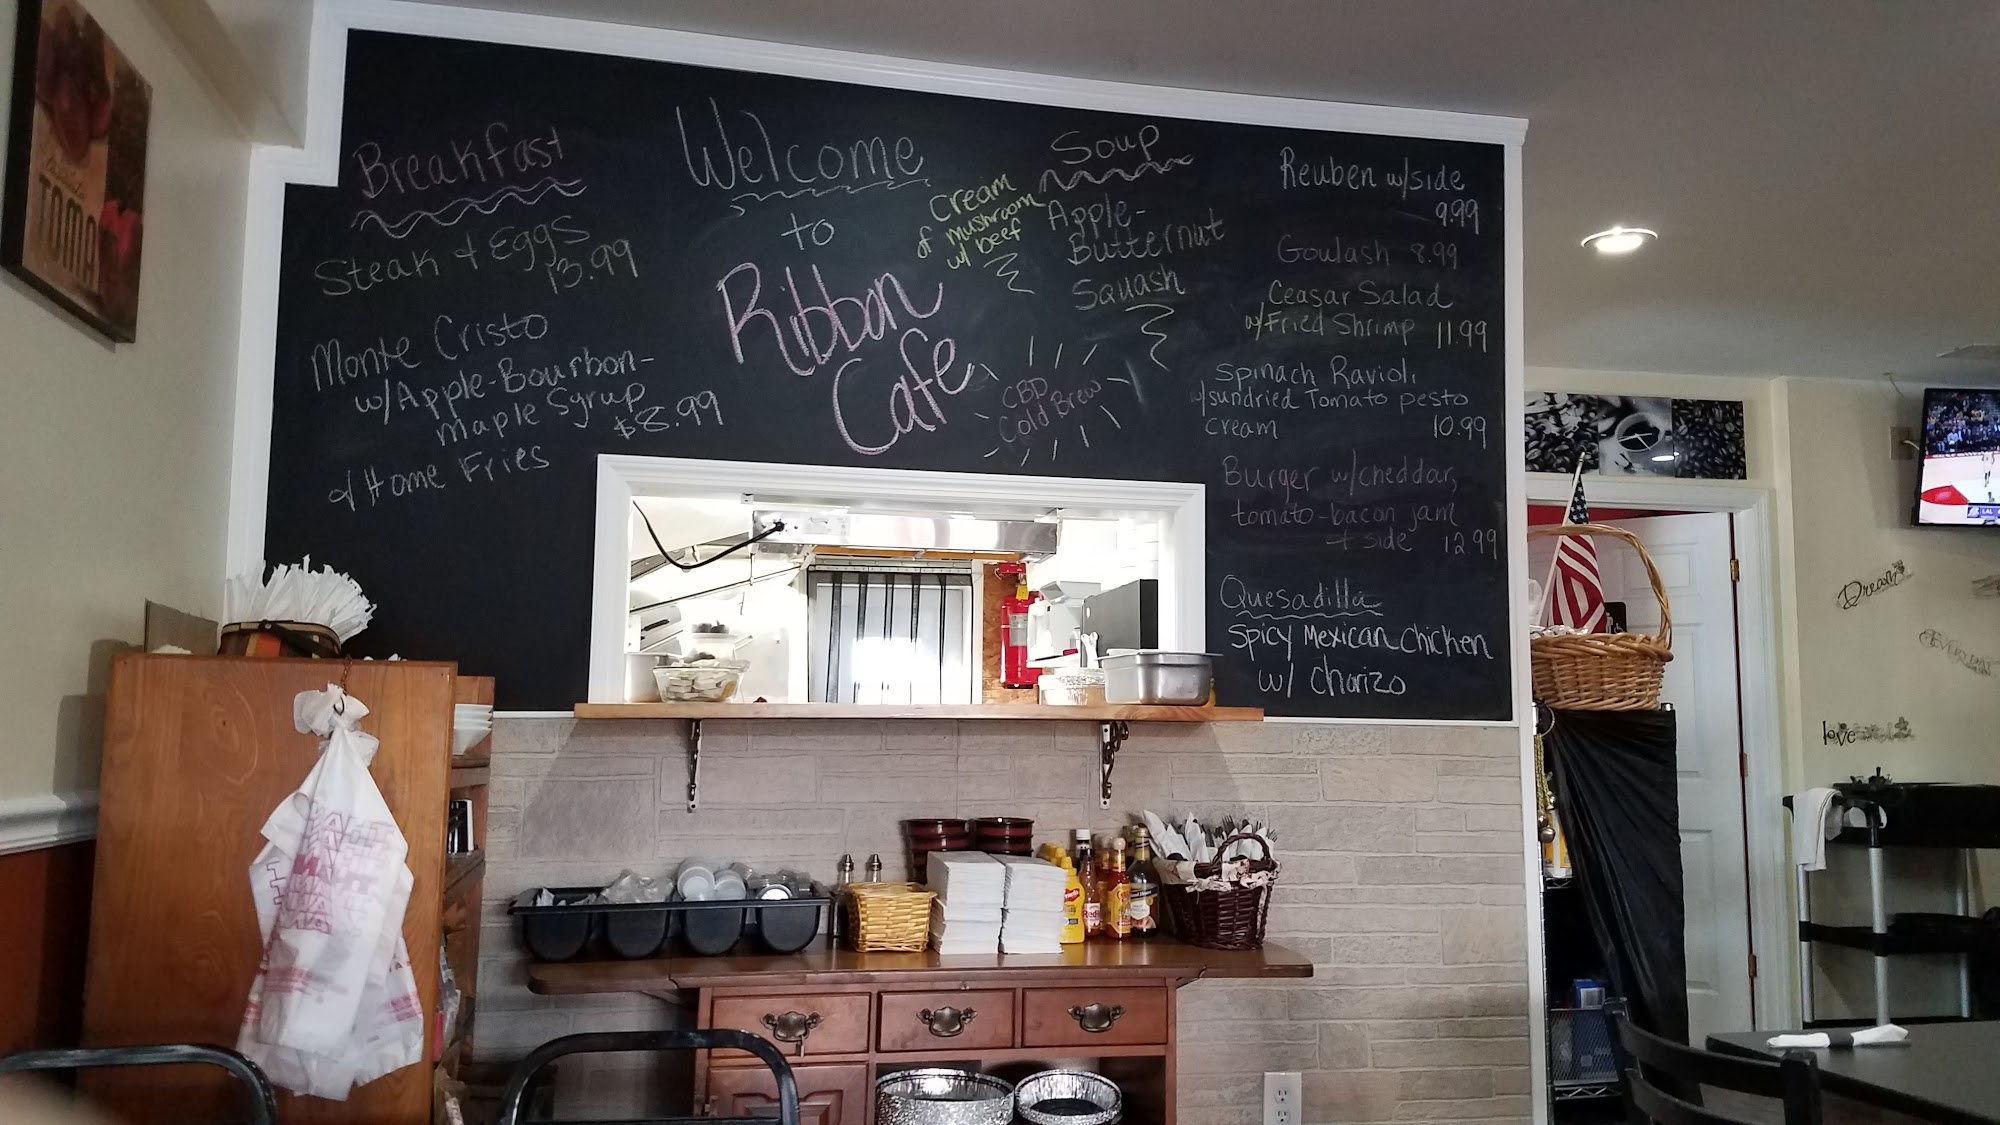 Breakfast
Steak + Eggs
13.99
Monte Cristo
w/Apple-Bourbon-
Maple Syrup
$8.99
w/ Home Fries
Welcome
to
Ribbon
Cafe
Cream
of mushroom
w/ beef
Soup
Apple-
Butternut
Squash
CBD
Cold Brew
Reuben w/side
9.99
Goulash 8.99
Ceasar Salad
w/Fried Shrimp 11.99
Spinach Ravioli
w/sundried Tomato pesto
cream 10.99
Burger w/cheddar,
tomato-bacon jam
+ side 12.99
Quesadilla
Spicy Mexican Chicken
w/ Chorizo
TOMA
Dream
love
LAL